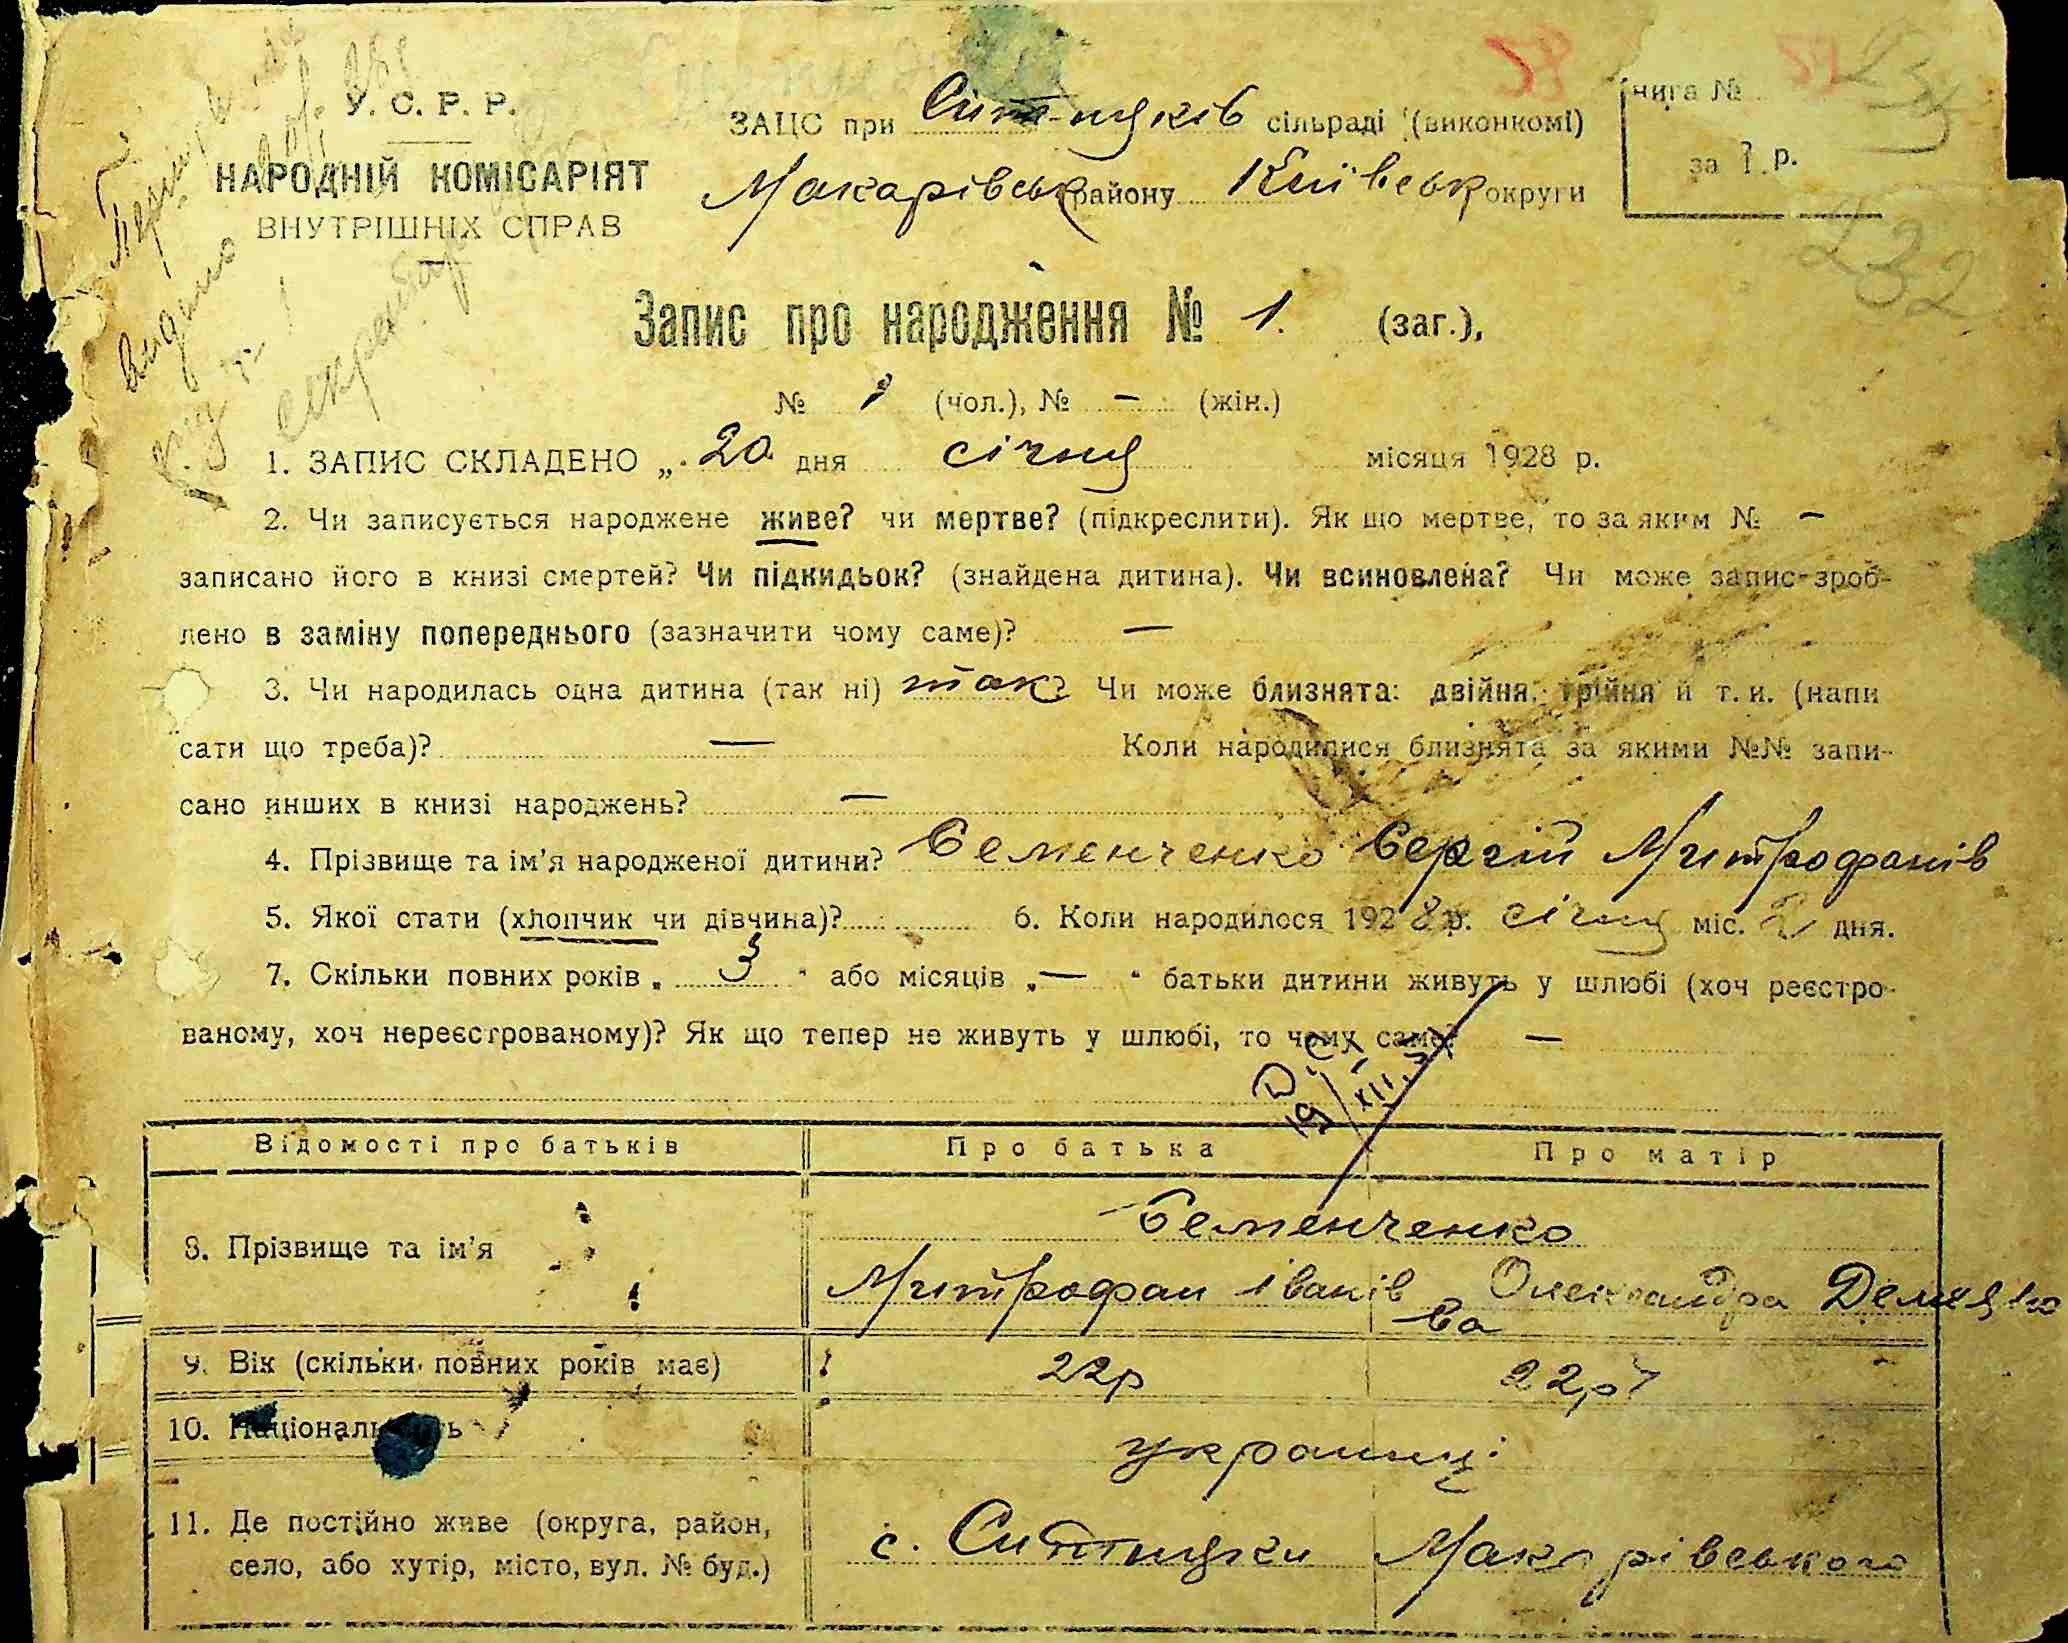 У. С. Р. Р.
НАРОДНІЙ КОМІСАРІЯТ
ВНУТРІШНІХ СПРАВ
ЗАЦС при Ситняків сільраді (виконкомі)
Макарівськ району Київськ округи
книга №
за р.
58
232
Запис про народження № 1. (заг.),
№ 1 (чол.), № — (жін.)
1. ЗАПИС СКЛАДЕНО „ 20 дня січня місяця 1928 р.
2. Чи записується народжене живе? чи мертве? (підкреслити). Як що мертве, то за яким № —
записано його в книзі смертей? Чи підкидьок? (знайдена дитина). Чи всиновлена? Чи може запис зроб-
лено в заміну попереднього (зазначити чому саме)? —
3. Чи народилась одна дитина (так ні) так Чи може близнята: двійня, трійня й т. и. (напи
сати що треба)? — Коли народилися близнята за якими №№ запи-
сано инших в книзі народжень? —
4. Прізвище та ім'я народженої дитини? Семенченко Сергій Митрофанів
5. Якої стати (хлопчик чи дівчина)? 6. Коли народилося 1928 р. січня міс. 2 дня.
7. Скільки повних років „ 3 " або місяців „ — " батьки дитини живуть у шлюбі (хоч реєстро-
ваному, хоч нереєстрованому)? Як що тепер не живуть у шлюбі, то чому саме? —
Відомості про батьків Про батька Про матір
8. Прізвище та ім'я Семенченко
Митрофан Іванів Олександра Демянов
ва
9. Вік (скільки повних років має) 22р 22р
10. Національність українці
11. Де постійно живе (округа, район, с. Ситняки Макарівського
село, або хутір, місто, вул. № буд.)